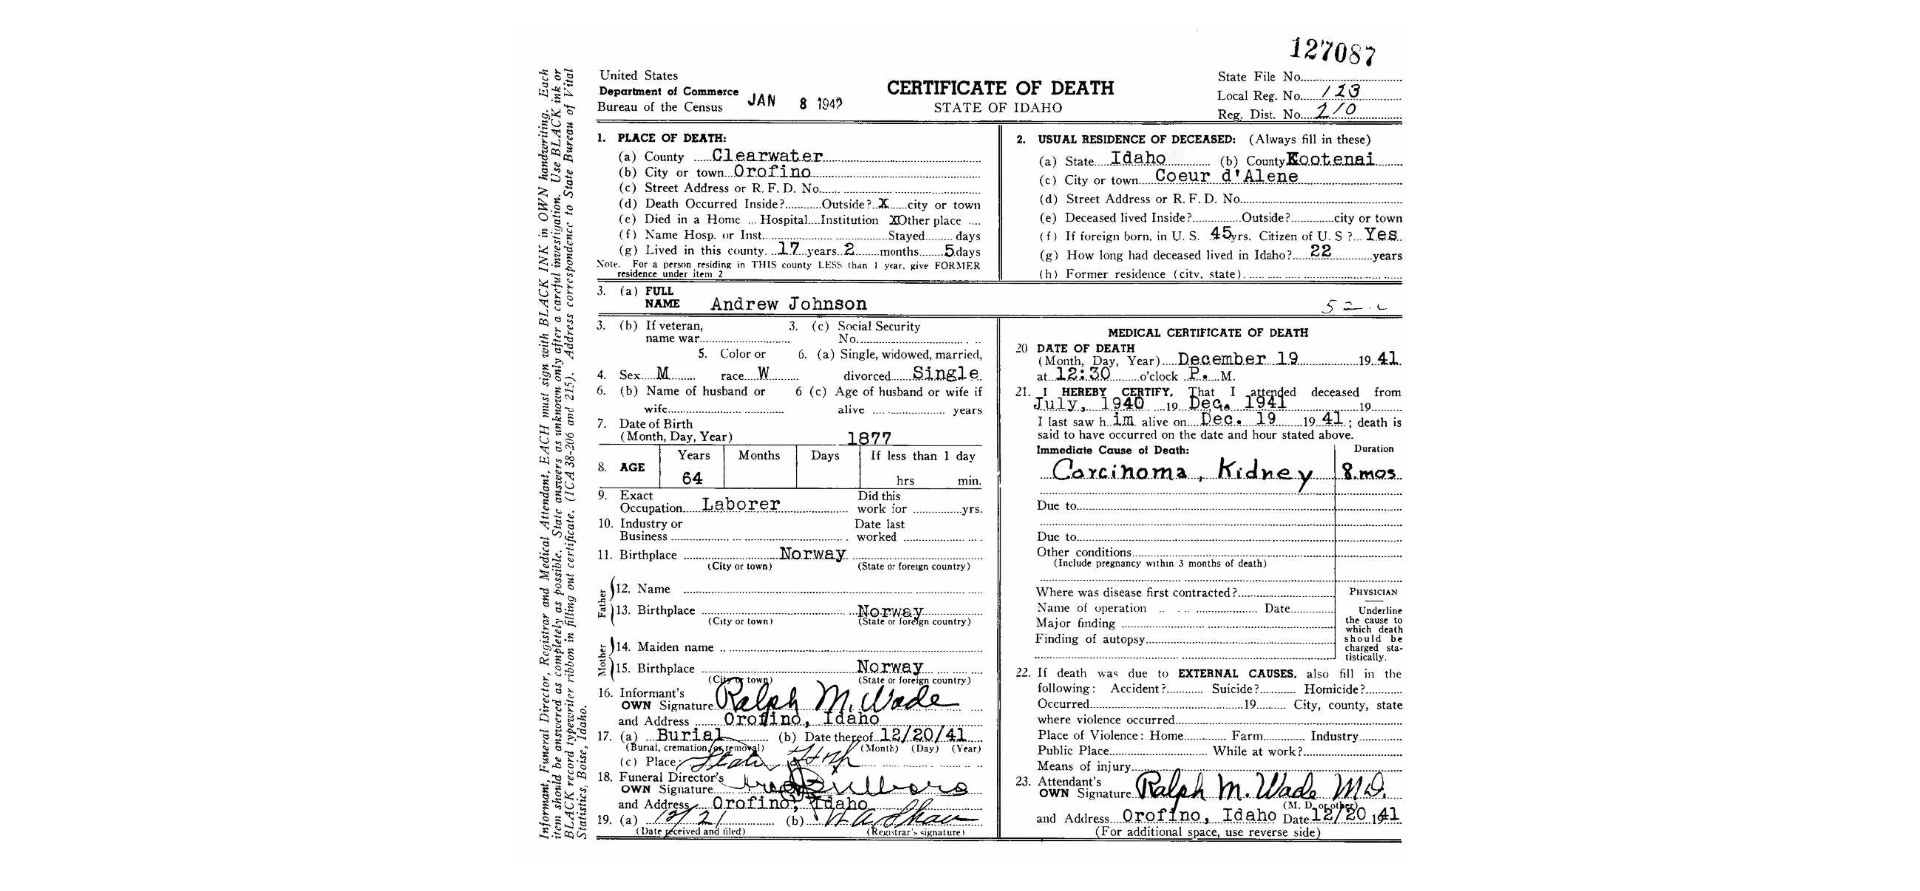 127087
United States
Department of Commerce
Bureau of the Census
JAN 8 1942
CERTIFICATE OF DEATH
STATE OF IDAHO
State File No.
Local Reg. No. 123
Reg. Dist. No. 210
Informant, Funeral Director, Registrar and Medical Attendant, EACH must sign with BLACK INK in OWN handwriting. Each
item should be answered as completely as possible. State answers as unknown only after a careful investigation. Use BLACK ink or
BLACK record typewriter ribbon in filling out certificate. (ICA 38-206 and 215). Address correspondence to State Bureau of Vital
Statistics, Boise, Idaho.
1. PLACE OF DEATH:
(a) County Clearwater
(b) City or town Orofino
(c) Street Address or R. F. D. No.
(d) Death Occurred Inside? Outside? X city or town
(e) Died in a Home Hospital Institution X Other place
(f) Name Hosp. or Inst. Stayed days
(g) Lived in this county 17 years 2 months 5 days
Note. For a person residing in THIS county LESS than 1 year, give FORMER
residence under item 2
2. USUAL RESIDENCE OF DECEASED: (Always fill in these)
(a) State Idaho (b) County Kootenai
(c) City or town Coeur d'Alene
(d) Street Address or R. F. D. No.
(e) Deceased lived Inside? Outside? city or town
(f) If foreign born, in U. S. 45 yrs. Citizen of U. S ? Yes
(g) How long had deceased lived in Idaho? 22 years
(h) Former residence (city, state)
3. (a) FULL
NAME Andrew Johnson
52
3. (b) If veteran,
name war
3. (c) Social Security
No.
4. Sex M
5. Color or
race W
6. (a) Single, widowed, married,
divorced Single
6. (b) Name of husband or
wife
6 (c) Age of husband or wife if
alive years
7. Date of Birth
(Month, Day, Year) 1877
8. AGE
Years Months Days If less than 1 day
64 hrs min.
9. Exact
Occupation Laborer
Did this
work for yrs.
10. Industry or
Business
Date last
worked
11. Birthplace Norway
(City or town) (State or foreign country)
Father
12. Name
13. Birthplace Norway
(City or town) (State or foreign country)
Mother
14. Maiden name
15. Birthplace Norway
(City or town) (State or foreign country)
16. Informant's
OWN Signature Ralph M. Wade
and Address Orofino, Idaho
17. (a) Burial (b) Date thereof 12/20/41
(Burial, cremation, or removal) (Month) (Day) (Year)
(c) Place State Hosp
18. Funeral Director's
OWN Signature
and Address Orofino, Idaho
19. (a) 12/21 (b)
(Date received and filed) (Registrar's signature)
MEDICAL CERTIFICATE OF DEATH
20 DATE OF DEATH
(Month, Day, Year) December 19 19 41
at 12:30 o'clock P. M.
21. I HEREBY CERTIFY, That I attended deceased from
July, 1940 19 Dec. 1941 19
I last saw h im alive on Dec. 19 19 41 ; death is
said to have occurred on the date and hour stated above.
Immediate Cause of Death: Duration
Carcinoma, Kidney 8.mos
Due to
Due to
Other conditions
(Include pregnancy within 3 months of death)
Where was disease first contracted?
Name of operation Date
Major finding
Finding of autopsy
PHYSICIAN
Underline
the cause to
which death
should be
charged sta-
tistically.
22. If death was due to EXTERNAL CAUSES, also fill in the
following: Accident? Suicide? Homicide?
Occurred 19 City, county, state
where violence occurred
Place of Violence: Home Farm Industry
Public Place While at work?
Means of injury
23. Attendant's
OWN Signature Ralph M. Wade M.D.
(M. D. or other)
and Address Orofino, Idaho Date 12/20 1941
(For additional space, use reverse side)